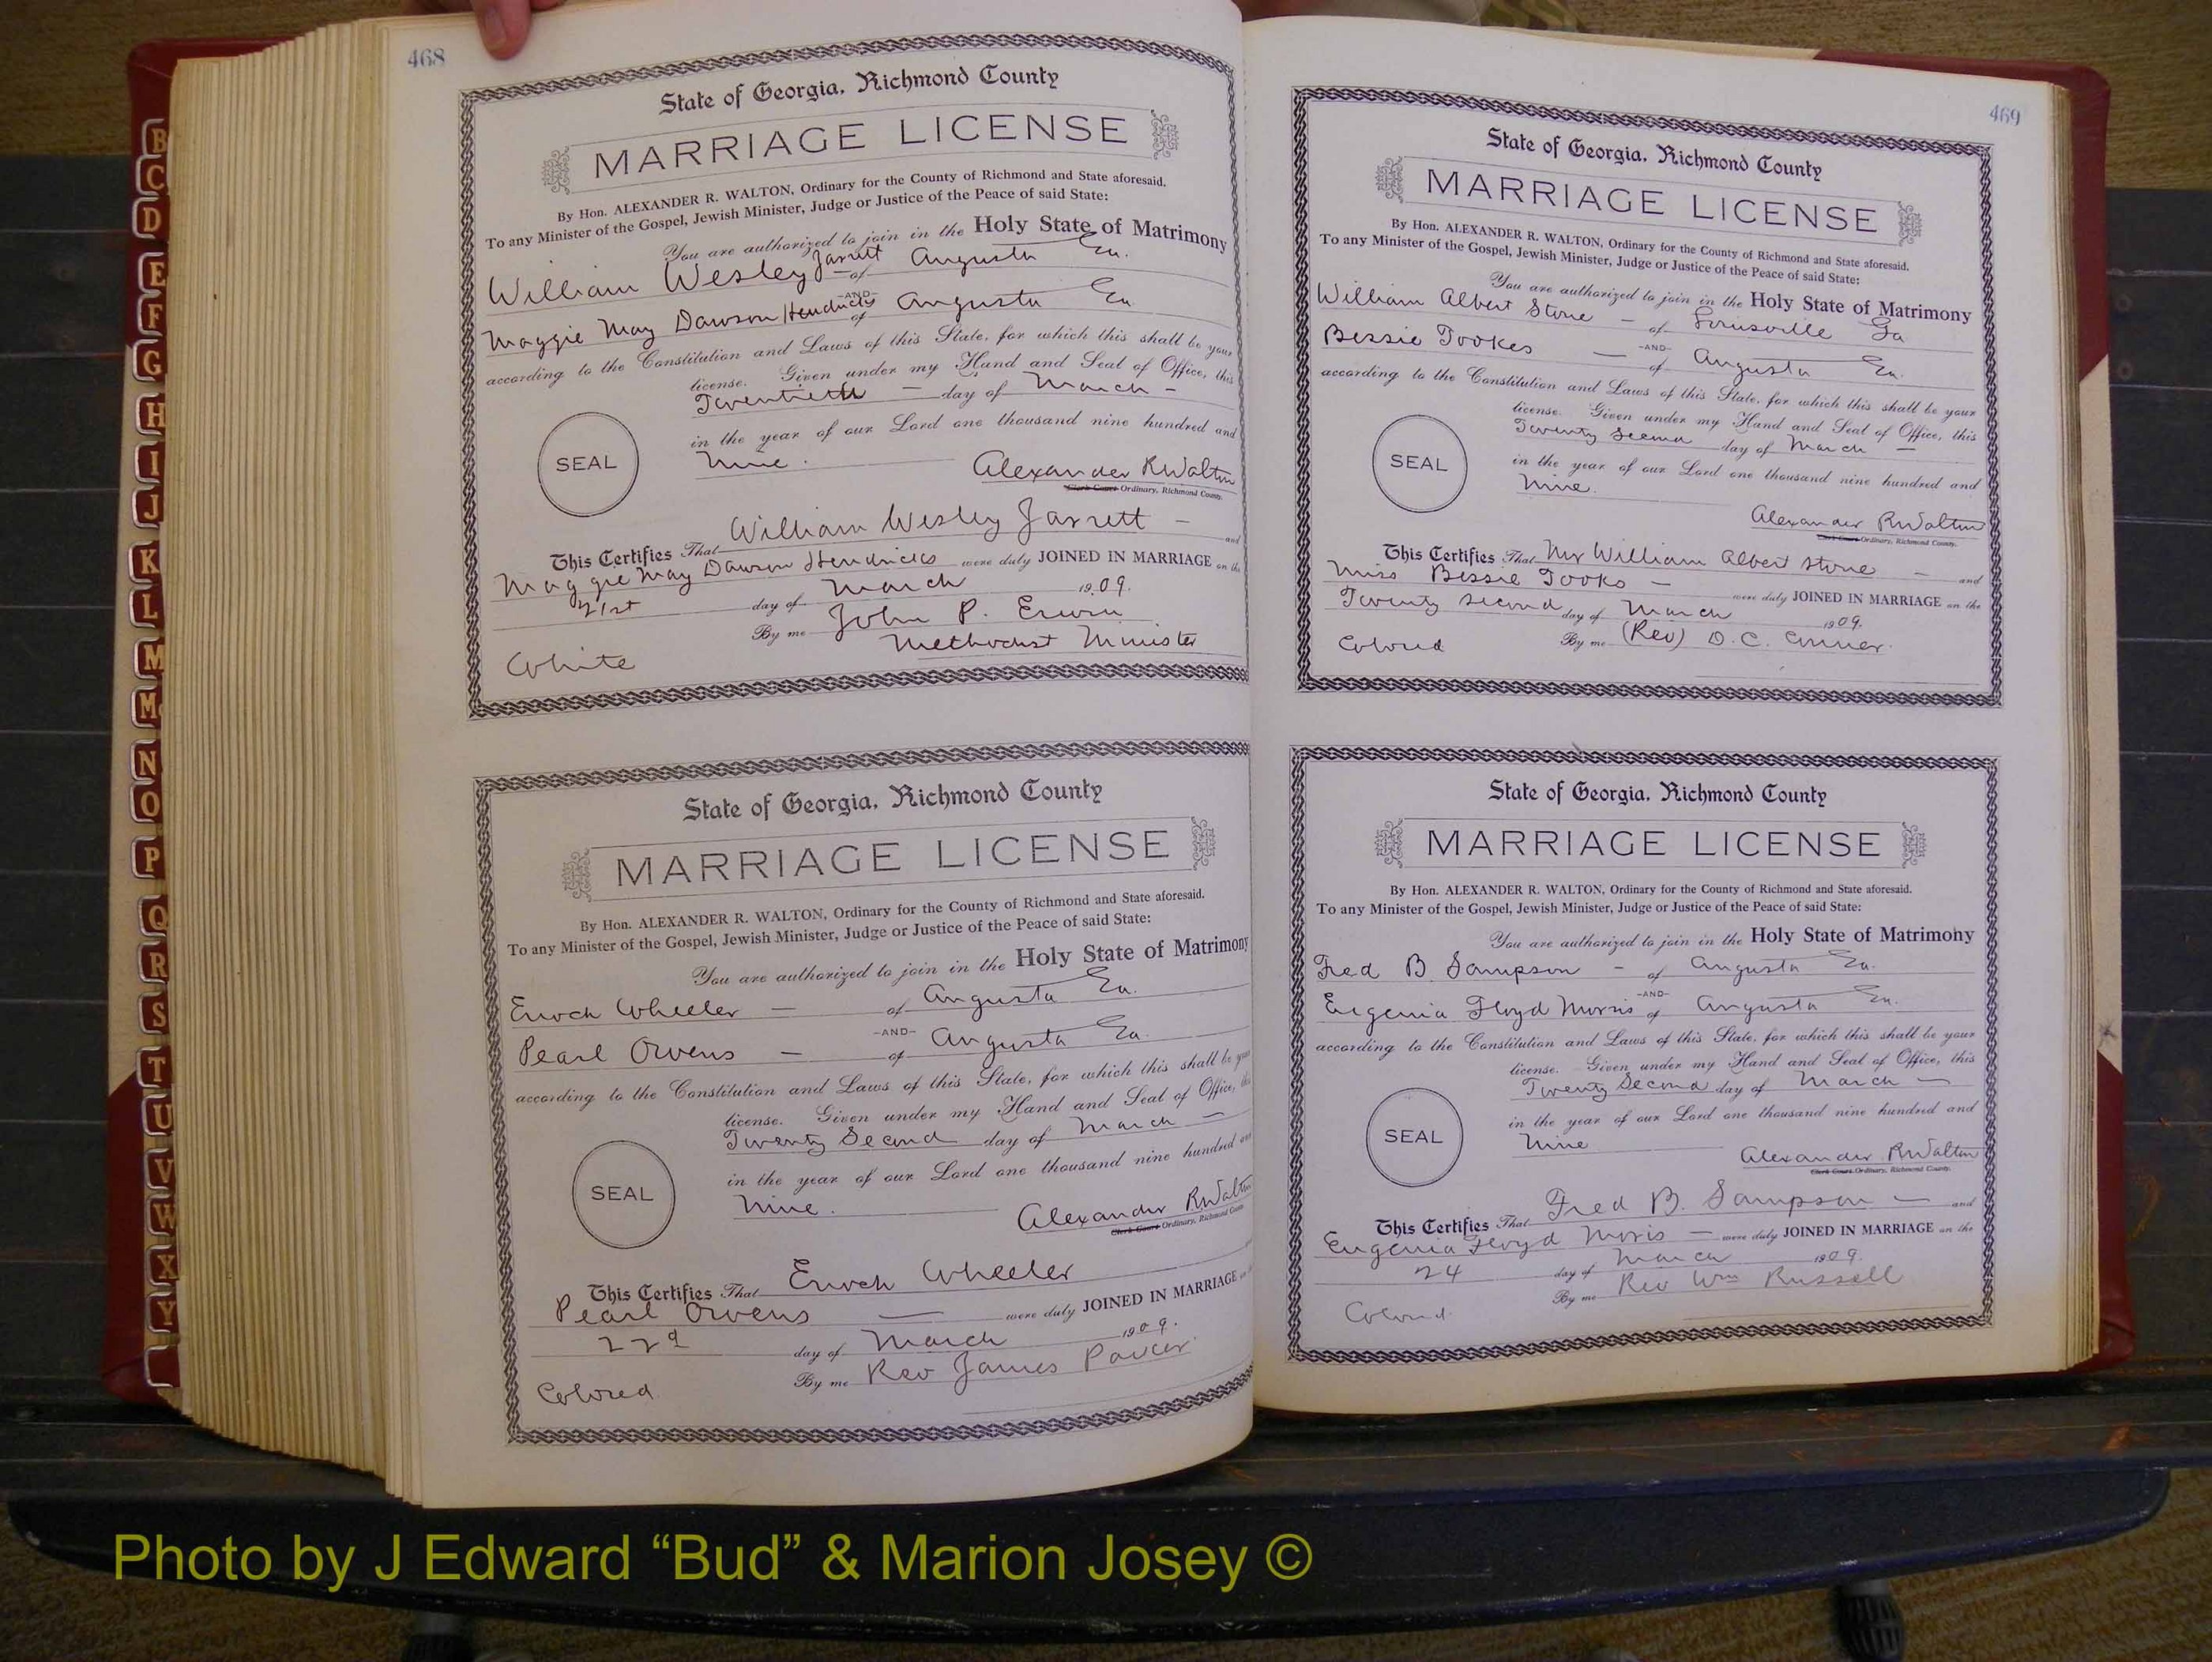 468
State of Georgia, Richmond County
MARRIAGE LICENSE
By Hon. ALEXANDER R. WALTON, Ordinary for the County of Richmond and State aforesaid.
To any Minister of the Gospel, Jewish Minister, Judge or Justice of the Peace of said State:
You are authorized to join in the Holy State of Matrimony
William Wesley Jarrett of Augusta Ga.
-AND-
Maggie May Dawson Hendricks of Augusta Ga
according to the Constitution and Laws of this State, for which this shall be your
license. Given under my Hand and Seal of Office, this
Twentieth - day of March -
in the year of our Lord one thousand nine hundred and
SEAL
Nine.
Alexander R Walton
Clerk Court Ordinary, Richmond County.
This Certifies That William Wesley Jarrett - and
Maggie May Dawson Hendricks were duly JOINED IN MARRIAGE on the
21st day of March 1909.
By me John P. Erwin
Methodist Minister
White
State of Georgia, Richmond County
MARRIAGE LICENSE
By Hon. ALEXANDER R. WALTON, Ordinary for the County of Richmond and State aforesaid.
To any Minister of the Gospel, Jewish Minister, Judge or Justice of the Peace of said State:
You are authorized to join in the Holy State of Matrimony
Enoch Wheeler - of Augusta Ga.
-AND-
Pearl Owens - of Augusta Ga.
according to the Constitution and Laws of this State, for which this shall be your
license. Given under my Hand and Seal of Office, this
Twenty Second day of March -
in the year of our Lord one thousand nine hundred and
SEAL
Nine.
Alexander R Walton
Clerk Court Ordinary, Richmond County
This Certifies That Enoch Wheeler
Pearl Owens - were duly JOINED IN MARRIAGE
22d day of March 1909.
By me Rev James
Colored
469
State of Georgia, Richmond County
MARRIAGE LICENSE
By Hon. ALEXANDER R. WALTON, Ordinary for the County of Richmond and State aforesaid.
To any Minister of the Gospel, Jewish Minister, Judge or Justice of the Peace of said State:
You are authorized to join in the Holy State of Matrimony
William Albert Stone - of Ga
-AND-
Bessie Tookes - of Augusta Ga.
according to the Constitution and Laws of this State, for which this shall be your
license. Given under my Hand and Seal of Office, this
Twenty Second day of March -
in the year of our Lord one thousand nine hundred and
SEAL
Nine.
Alexander R Walton
Clerk Court Ordinary, Richmond County.
This Certifies That Mr William Albert Stone - and
Miss Bessie Tooks - were duly JOINED IN MARRIAGE on the
Twenty Second day of March 1909.
By me (Rev) D. C.
Colored
State of Georgia, Richmond County
MARRIAGE LICENSE
By Hon. ALEXANDER R. WALTON, Ordinary for the County of Richmond and State aforesaid.
To any Minister of the Gospel, Jewish Minister, Judge or Justice of the Peace of said State:
You are authorized to join in the Holy State of Matrimony
Fred B Sampson - of Augusta Ga.
-AND-
Eugenia Floyd Morris of Augusta Ga.
according to the Constitution and Laws of this State, for which this shall be your
license. Given under my Hand and Seal of Office, this
Twenty Second day of March -
in the year of our Lord one thousand nine hundred and
SEAL
Nine
Alexander R Walton
Clerk Court Ordinary, Richmond County.
This Certifies That Fred B. Sampson - and
Eugenia Floyd Morris - were duly JOINED IN MARRIAGE on the
24 day of March 1909.
By me Rev Wm Russell
Colored
B
C
D
E
F
G
H
I
J
K
L
M
Mc
N
O
P
Q
R
S
T
U
V
W
X
Y
Photo by J Edward “Bud” & Marion Josey ©